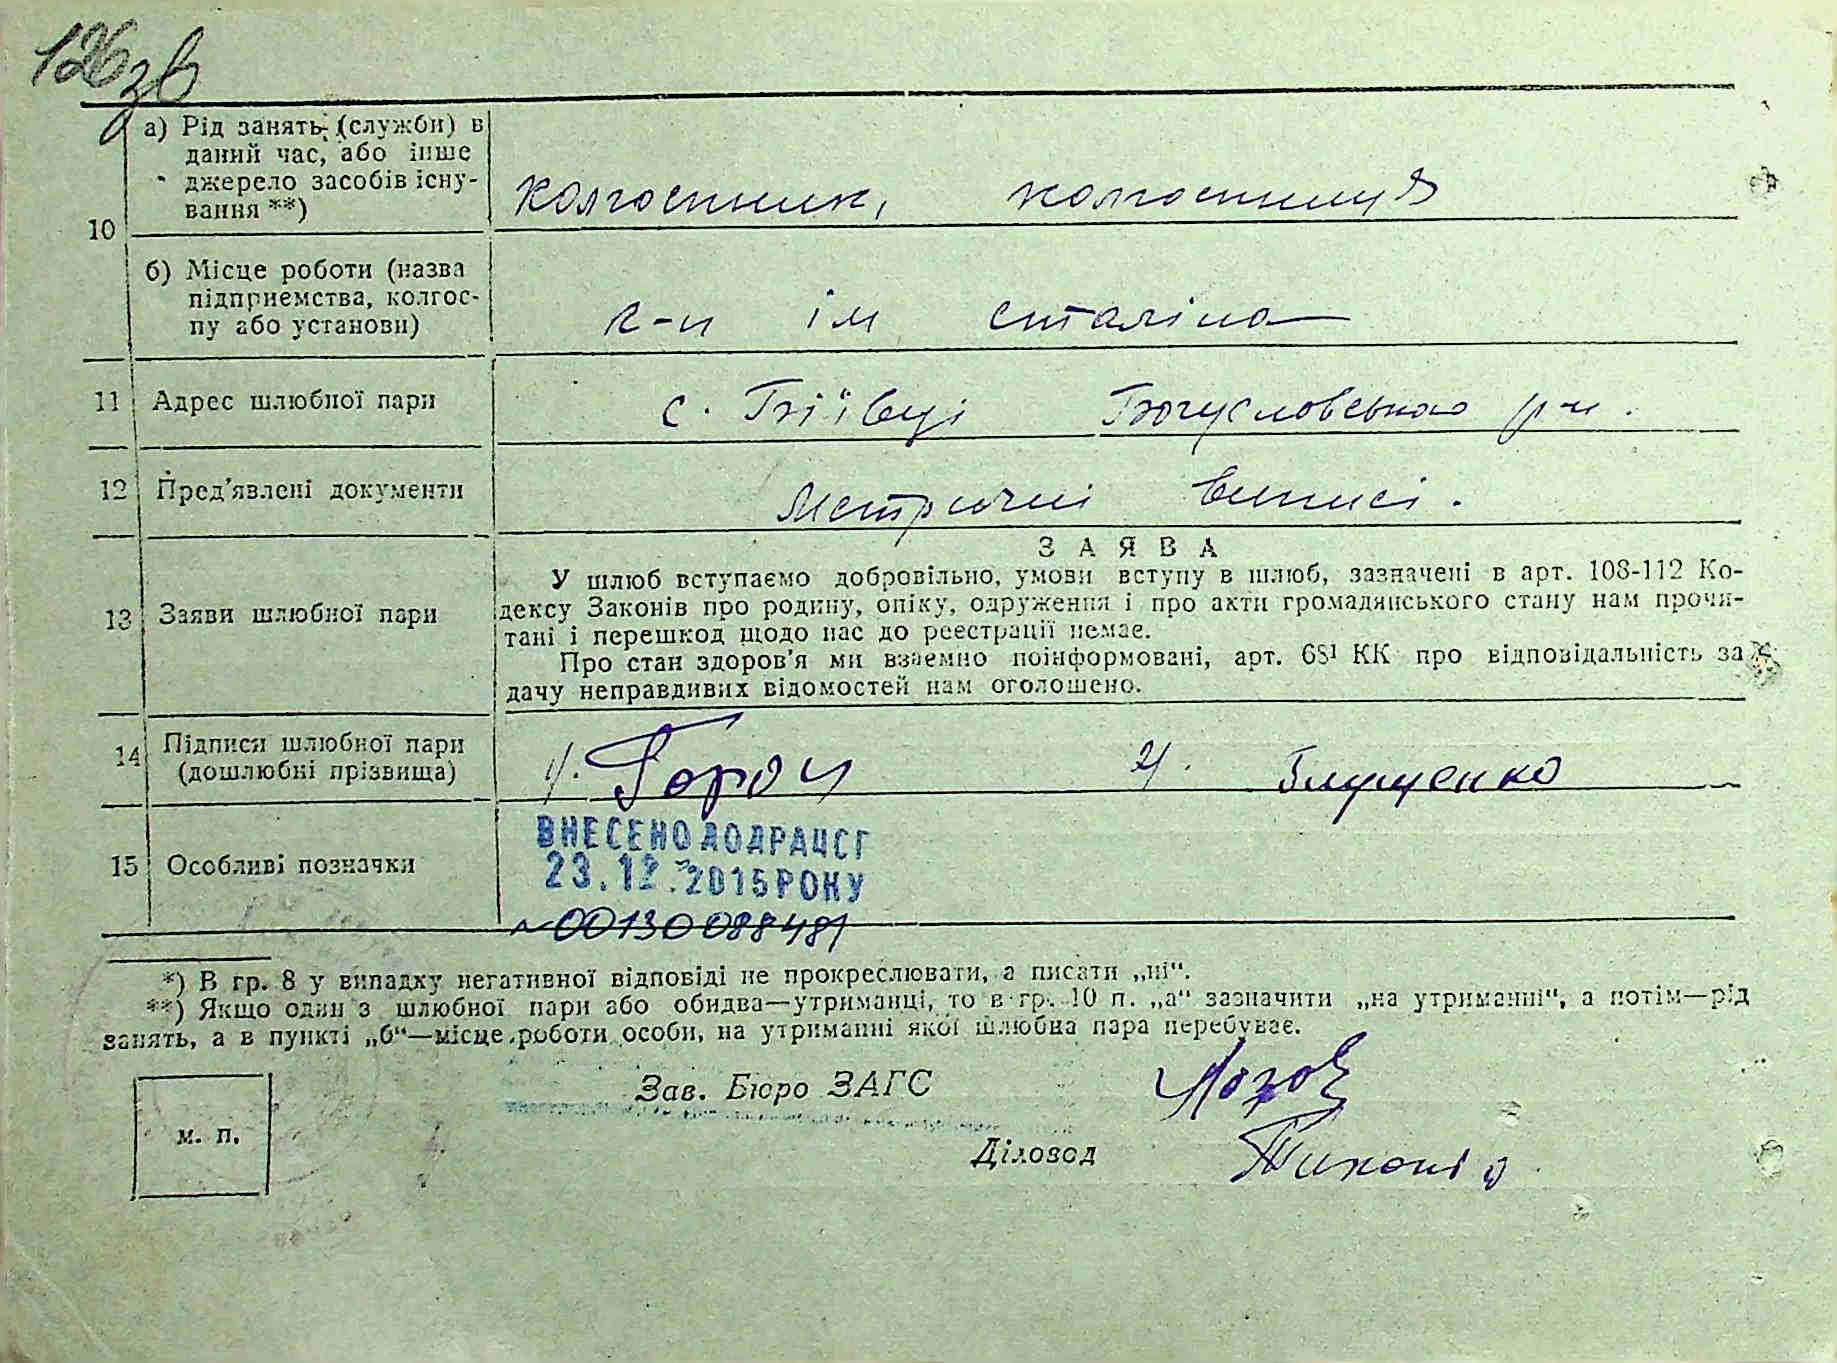 126зв
10
а) Рід занять (служби) в
даний час, або інше
джерело засобів існу-
вання **)
колгоспник, колгоспниця
б) Місце роботи (назва
підприємства, колгос-
пу або установи)
к-п ім сталіна
11 Адрес шлюбної пари
с. Бііївці Богусловського р-н.
12 Пред'явлені документи
Метричні виписі.
13 Заяви шлюбної пари
ЗАЯВА
У шлюб вступаємо добровільно, умови вступу в шлюб, зазначені в арт. 108-112 Ко-
дексу Законів про родину, опіку, одруження і про акти громадянського стану нам прочи-
тані і перешкод щодо нас до реєстрації немає.
Про стан здоров'я ми взаємно поінформовані, арт. 68¹ КК про відповідальність за
дачу неправдивих відомостей нам оголошено.
14 Підписи шлюбної пари
(дошлюбні прізвища)
1/. 2/. Глущенко
15 Особливі позначки
ВНЕСЕНО ДО ДРАЦСГ
23.12.2015 РОКУ
№00130088481
*) В гр. 8 у випадку негативної відповіді не прокреслювати, а писати „ні“.
**) Якщо один з шлюбної пари або обидва—утриманці, то в гр. 10 п. „а“ зазначити „на утриманні“, а потім—рід
занять, а в пункті „б“—місце роботи особи, на утриманні якої шлюбна пара перебуває.
Зав. Бюро ЗАГС
м. п.
Діловод